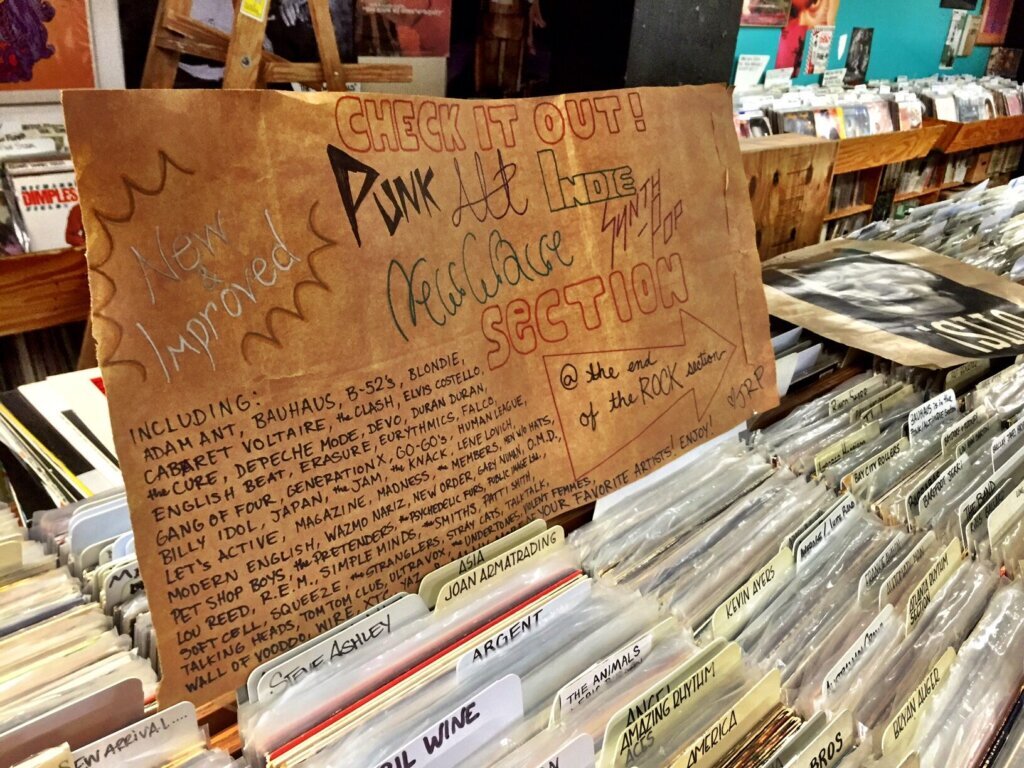 CHECK IT OUT!
PUNK Alt INDIE
New Wave SYNTH POP
SECTION
New
&
Improved
@ the end
of the ROCK section
INCLUDING:
ADAM ANT, BAUHAUS, B-52's, BLONDIE,
CABARET VOLTAIRE, the CLASH, ELVIS COSTELLO,
the CURE, DEPECHE MODE, DEVO, DURAN DURAN,
ENGLISH BEAT, ERASURE, EURYTHMICS, FALCO,
GANG OF FOUR, GENERATION X, GO-GO's, HUMAN LEAGUE,
BILLY IDOL, JAPAN, the JAM, the KNACK, LENE LOVICH,
LET'S ACTIVE, MAGAZINE, MADNESS, the MEMBERS, MEN W/O HATS,
MODERN ENGLISH, WAZMO NARIZ, NEW ORDER, GARY NUMAN, O.M.D.,
PET SHOP BOYS, the PRETENDERS, the PSYCHEDELIC FURS, PUBLIC IMAGE LTD.,
LOU REED, R.E.M., SIMPLE MINDS, the SMITHS, PATTI SMITH,
SOFT CELL, SQUEEZE, the STRANGLERS, STRAY CATS, TALK TALK,
TALKING HEADS, TOM TOM CLUB, ULTRAVOX, UNDERTONES, VIOLENT FEMMES,
WALL OF VOODOO, WIRE, XTC, YAZ YOUR FAVORITE ARTISTS! ENJOY!
DIMPLES
ASIA
JOAN ARMATRADING
STEVE ASHLEY
ARGENT
THE ANIMALS
WINE
AMAZING RHYTHM
ACES
AMERICA
NEW ARRIVAL....
KEVIN AYERS
BROS
BRYAN AUGER
ATLANTA RHYTHM
SECTION
BAY CITY ROLLERS
BAREFOOT JERRY
THE BAND